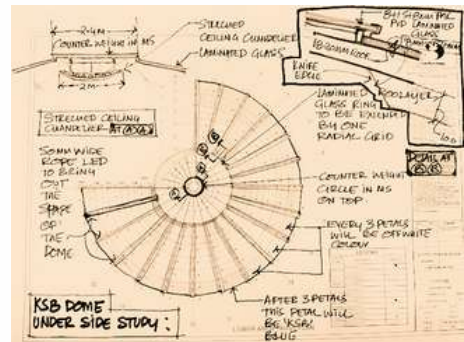 2.4M
COUNTER WEIGHT IN MS
2M
STRECHED
CEILING CHANDELIER
LAMINATED GLASS
8+1.5+8MM
PVD LAMINATED
GLASS
KNIFE
EDGE
STRECHED CEILING
CHANDELIER AT
50MM WIDE
ROPE LED
TO BRING
OUT
THE
SHAPE
OF
THE
DOME
LAMINATED
GLASS RING
TO BE EXTENDED
BY ONE
RADIAL GRID
DETAIL AT
COUNTER WEIGHT
CIRCLE IN MS
ON TOP.
EVERY 3 PETALS
WILL BE OFFWHITE
COLOUR
AFTER 3 PETALS
THIS PETAL WILL
BE 'KSB'
BLUE
KSB DOME
UNDER SIDE STUDY: